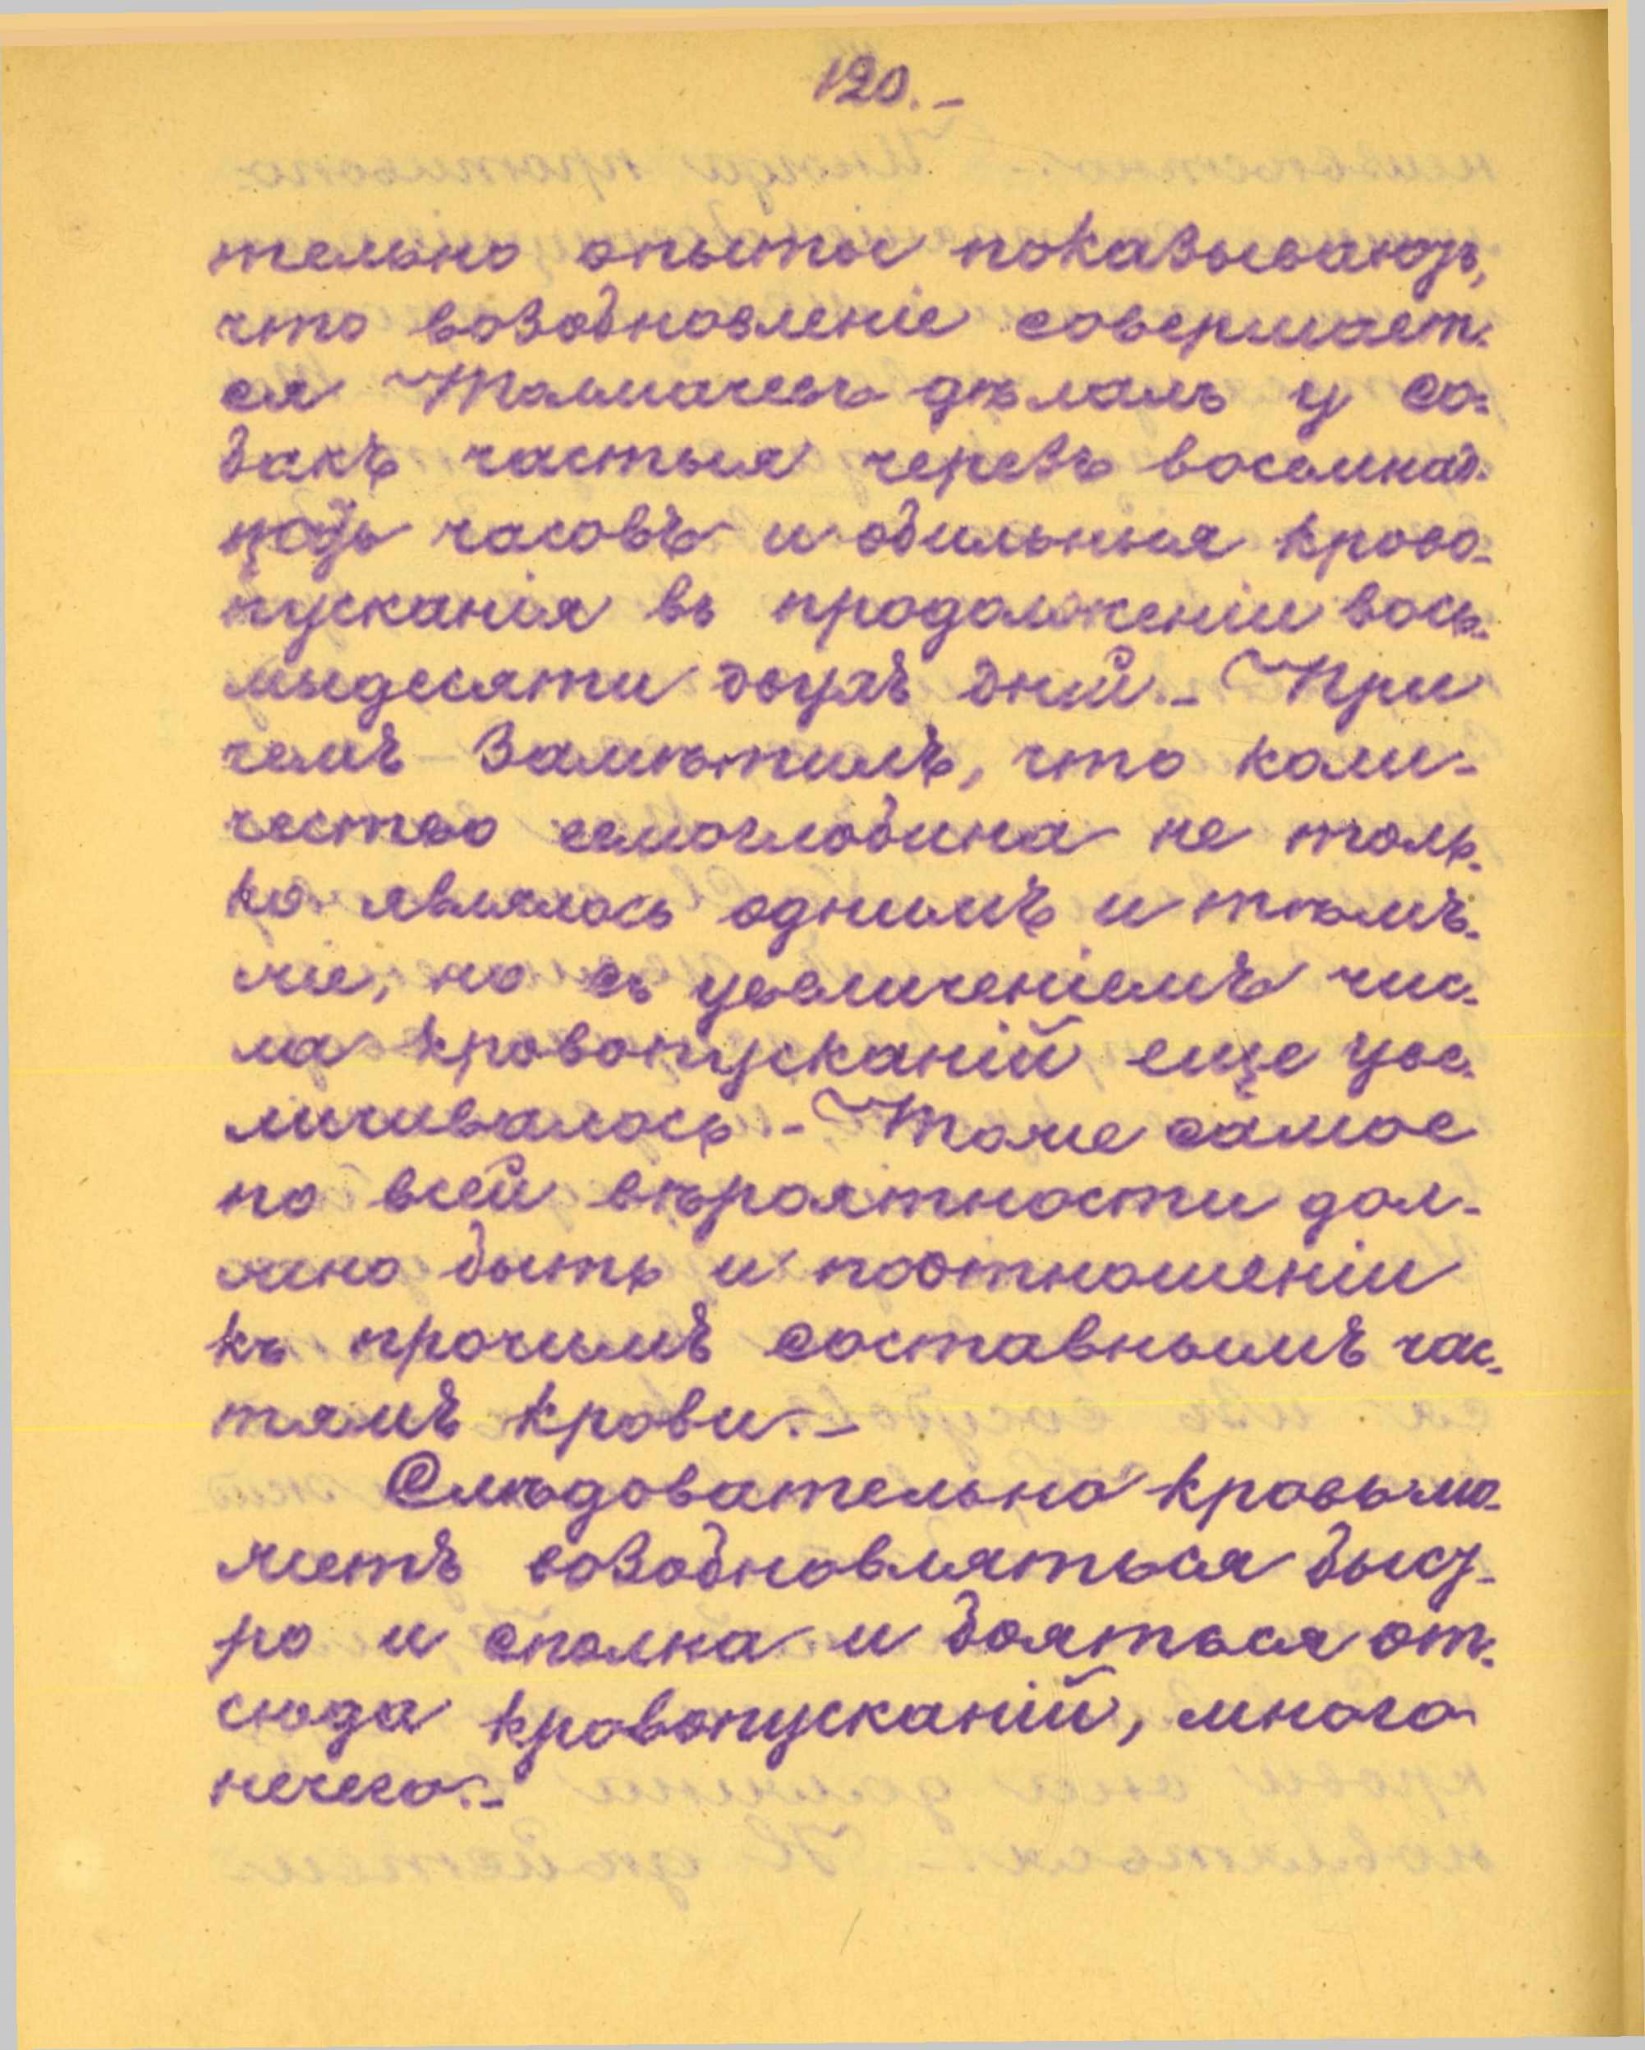 120.-
тельно опыты показываютъ,
что возобновленіе совершает-
ся Толмачевъ дѣлалъ у со-
бакъ частыя черезъ восемнад-
цать часовъ и обильныя крово-
пусканія въ продолженіи вось-
мидесяти двухъ дней.- При
чемъ замѣтилъ, что коли-
чество гемоглобина не толь-
ко являлось однимъ и тѣмъ-
же, но съ увеличеніемъ чис-
ла кровопусканій еще уве-
личивалось.- Тоже самое
по всей вѣроятности дол-
жно быть и поотношеніи
къ прочимъ составнымъ час-
тямъ крови.-
Слѣдовательно кровь мо-
жетъ возобновляться быст-
ро и сполна и бояться от-
сюда кровопусканій, много
нечего.-